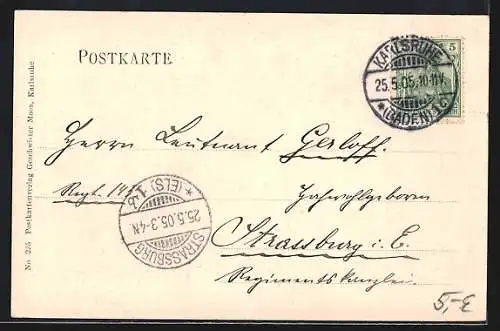 POSTKARTE
5
KARLSRUHE
25.5.05.10-11V.
* (BADEN) 1C *
Herrn Leutnant Gerloff.
Regt. 143
Hochwohlgeboren
* (ELS) 1. b
25.5.05.3-4N.
STRASSBURG
Strassburg i. E.
Regimentskanzlei.
5,-E
No. 235 Postkartenverlag Geschwister Moos, Karlsruhe